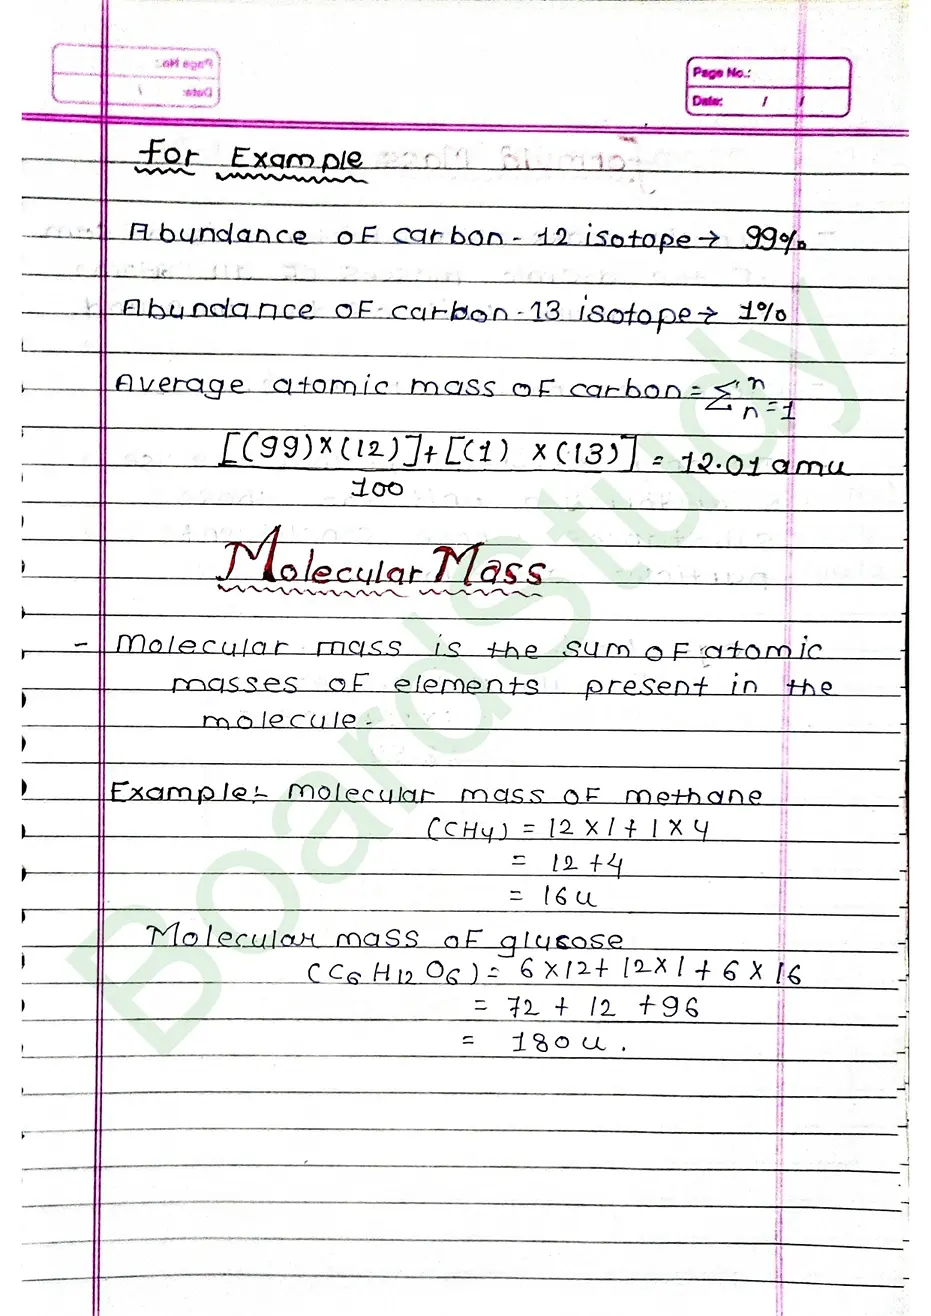 Page No.:
Date: / /
For Example
Abundance of carbon-12 isotope → 99%
Abundance of carbon-13 isotope → 1%
Average atomic mass of carbon = Σ n n=1
[(99)×(12)]+[(1) ×(13)] = 12.01 amu
100
Molecular Mass
- Molecular mass is the sum of atomic
masses of elements present in the
molecule.
Example:- molecular mass of methane
(CH4) = 12 × 1 + 1 × 4
= 12 + 4
= 16 u
Molecular mass of glucose
(C6 H12 O6) = 6 × 12 + 12 × 1 + 6 × 16
= 72 + 12 + 96
= 180 u.
BoardStudy